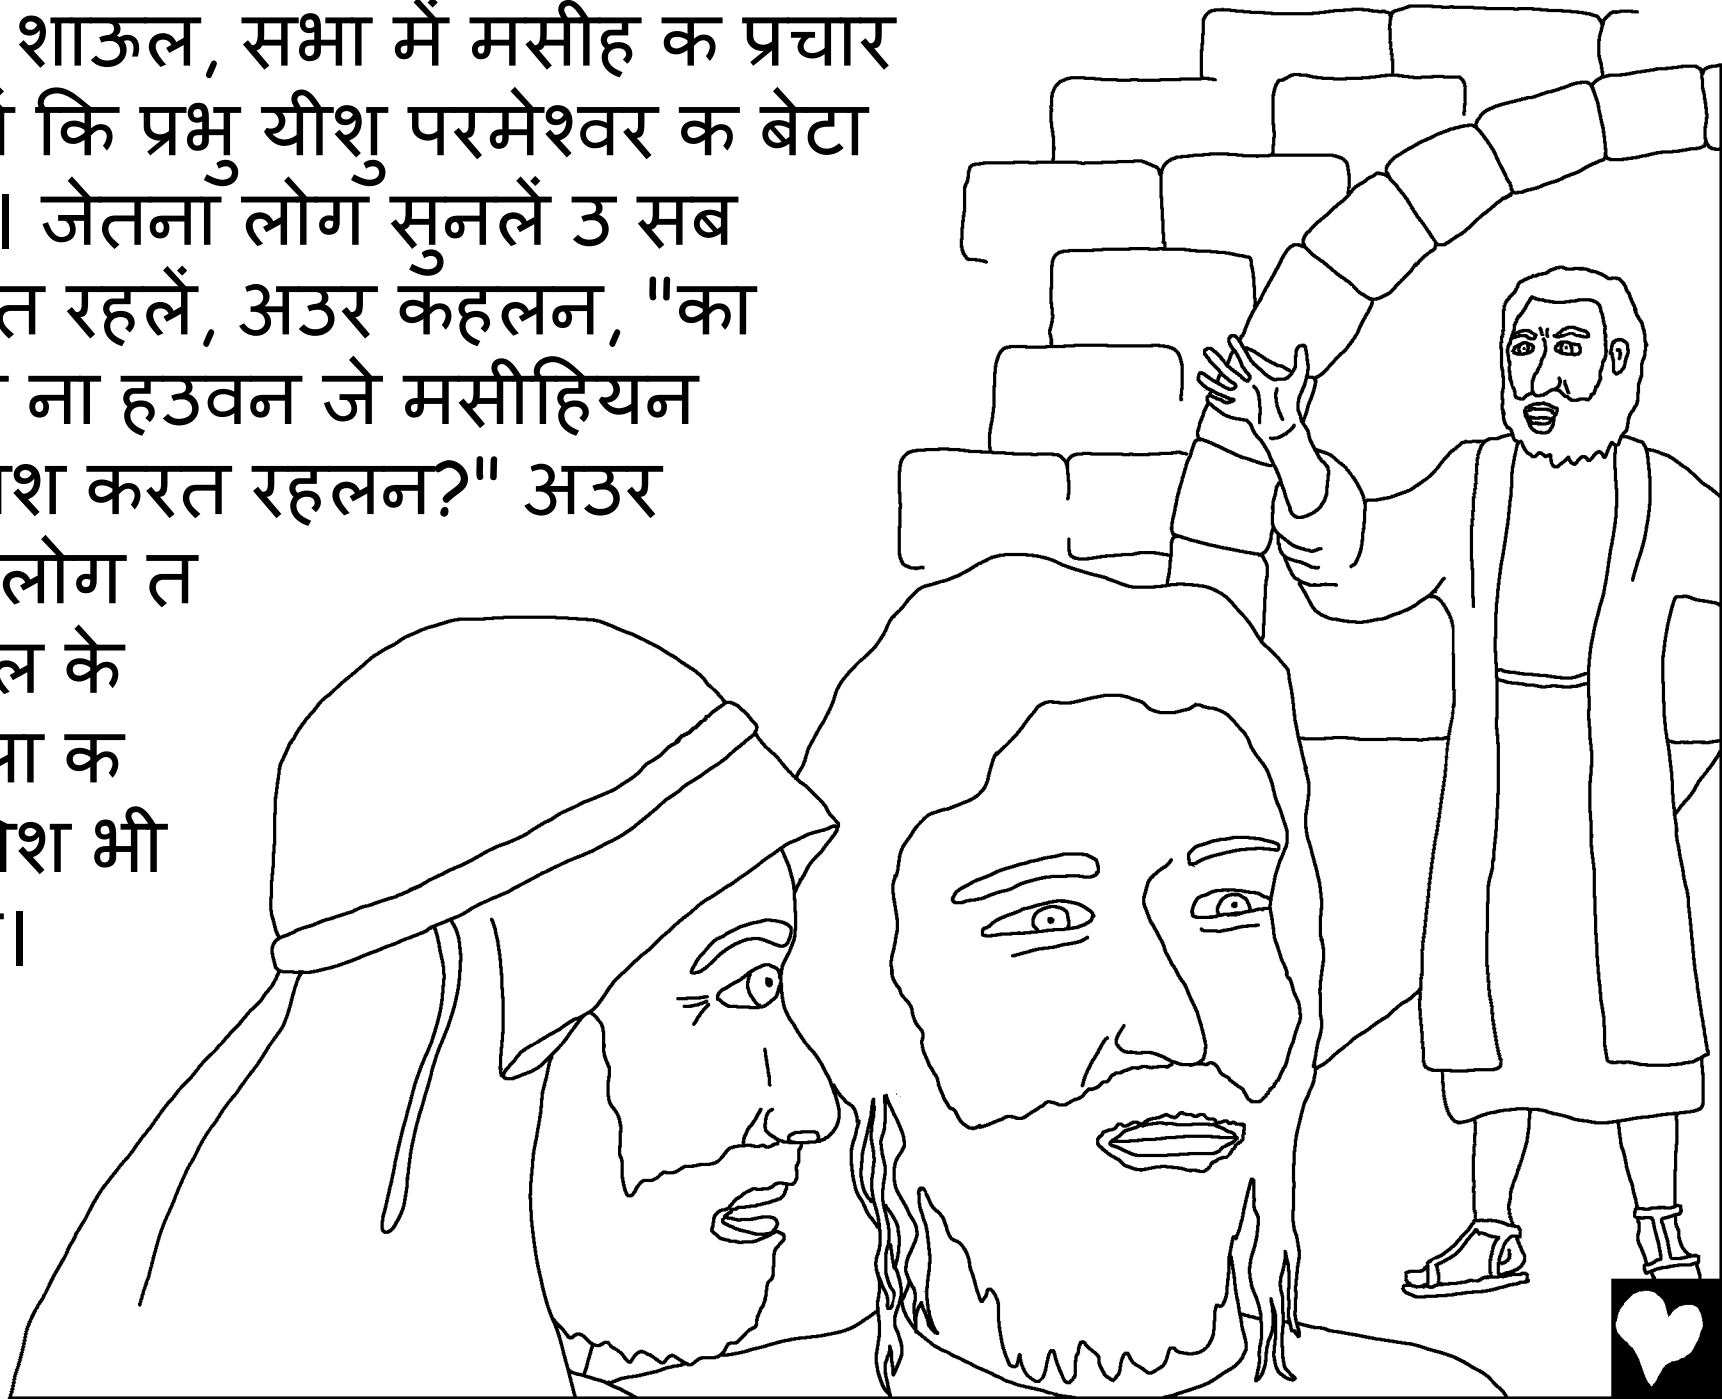 शाऊल, सभा में मसीह क प्रचार
कि प्रभु यीशु परमेश्वर क बेटा
। जेतना लोग सुनलें उ सब
रहलें, अउर कहलन, "का
ना हउवन जे मसीहियन
करत रहलन?" अउर
लोग त
के
क
भी
।